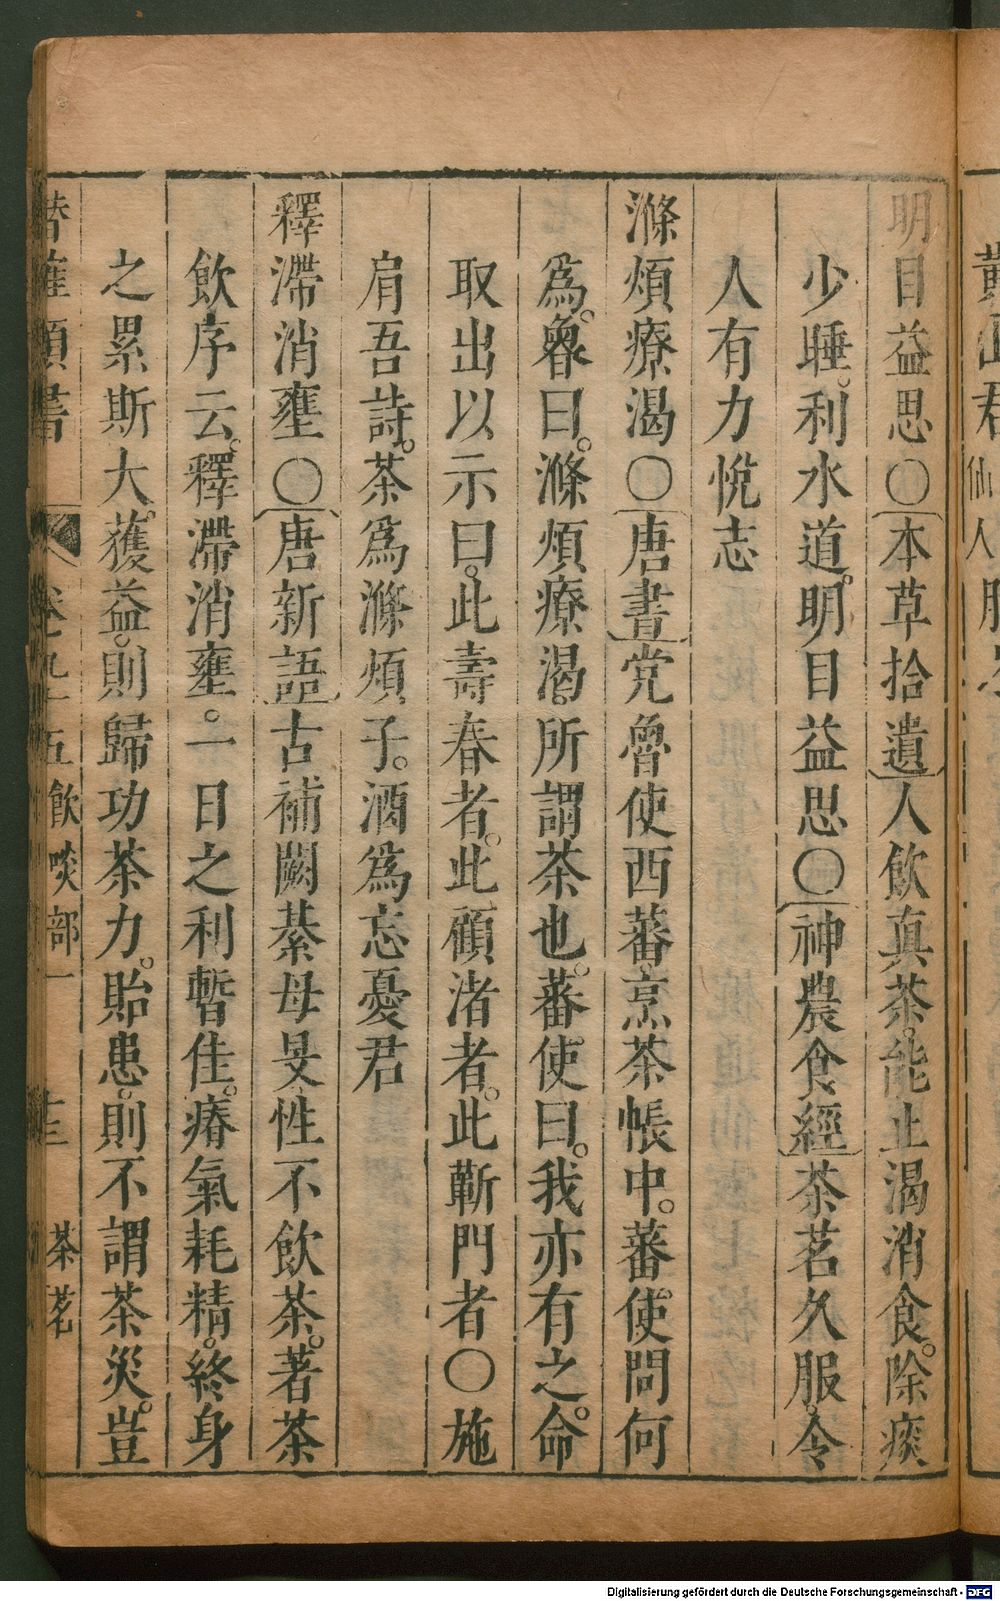 明目益思〇本草拾遺人飲真茶。能止渴消食。除痰
少睡。利水道。明目益思〇神農食經茶茗久服。令
人有力悅志
滌煩療渴〇唐書党魯使西蕃烹茶帳中。蕃使問何
為。魯曰。滌煩療渴。所謂茶也。蕃使曰。我亦有之。命
取出以示曰。此壽春者。此顧渚者。此蘄門者〇施
肩吾詩。茶爲滌煩子。酒爲忘憂君
釋滯消壅〇唐新語古補闕綦母旻性不飲茶。著茶
飲序云。釋滯消壅。一日之利暫佳。瘠氣耗精。終身
之累斯大。獲益。則歸功茶力。貽患。則不謂茶災。豈
潛確類書 卷之九十五 飲啖部一 十三 茶茗
Digitalisierung gefördert durch die Deutsche Forschungsgemeinschaft - DFG